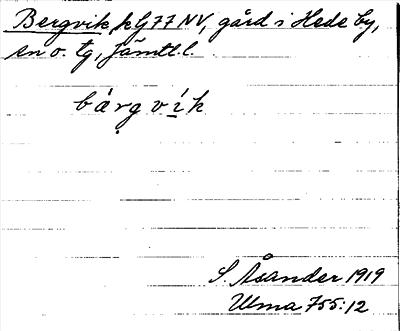 Bergvik, kG 77 NV, gård i Hede by,
sn o. tg, Jämtl. l.
bá̤rgvík
S. Åsander 1919
Ulma 755:12